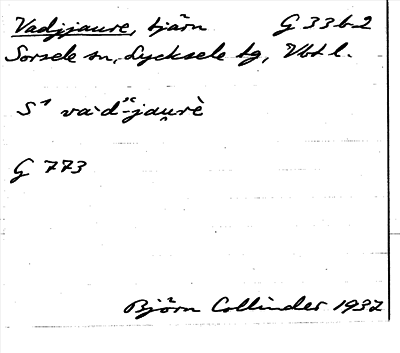 Vadjjaure, tjärn G 33 b 2
Sorsele sn, Lycksele lg, Vbtl.
S¹ va·d῎-jau̯rè
G 773
Björn Collinder 1937